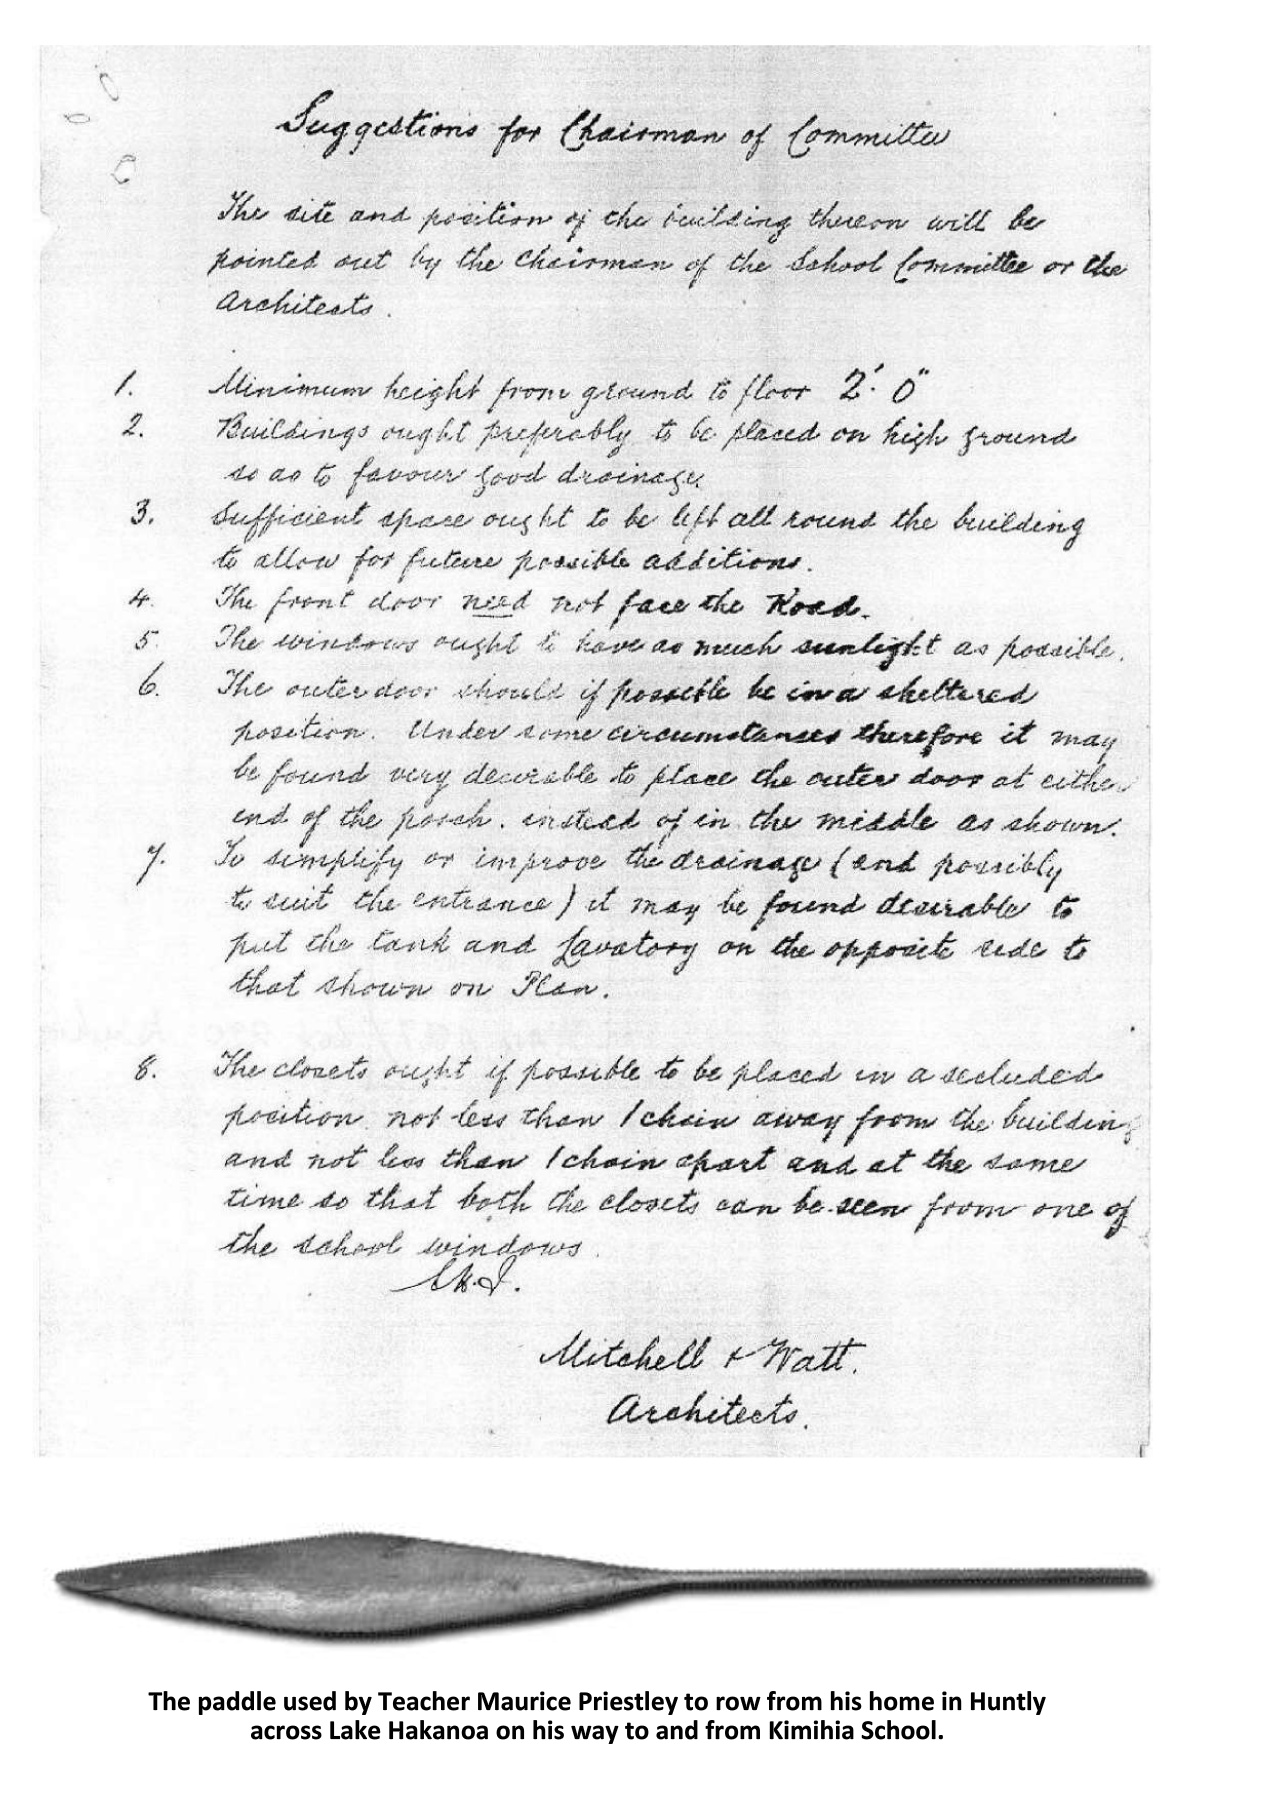 Suggestions for Chairman of Committee
The site and position of the building thereon will be
pointed out by the Chairman of the School Committee or the
Architects.
1. Minimum height from ground to floor 2'. 0"
2. Buildings ought preferably to be placed on high ground
so as to favour good drainage.
3. Sufficient space ought to be left all round the building
to allow for future possible additions.
4. The front door need not face the Road.
5. The windows ought to have as much sunlight as possible.
6. The outer door should if possible be in a sheltered
position. Under some circumstances therefore it may
be found very desirable to place the outer door at either
end of the porch. instead of in the middle as shown.
7. To simplify or improve the drainage (and possibly
to suit the entrance) it may be found desirable to
put the tank and Lavatory on the opposite side to
that shown on Plan.
8. The closets ought if possible to be placed in a secluded
position not less than 1 chain away from the building
and not less than 1 chain apart and at the same
time so that both the closets can be seen from one of
the school windows.
Mitchell & Watt.
Architects.
The paddle used by Teacher Maurice Priestley to row from his home in Huntly
across Lake Hakanoa on his way to and from Kimihia School.